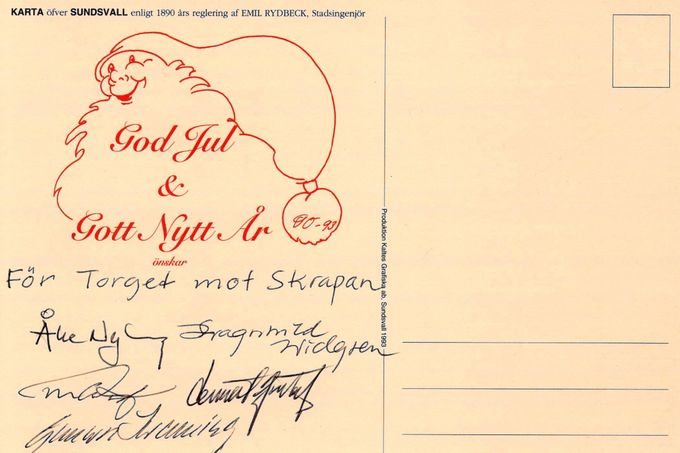 KARTA öfver SUNDSVALL enligt 1890 års reglering af EMIL RYDBECK, Stadsingenjör
God Jul
&
Gott Nytt År
90-93
önskar
För Torget mot Skrapan
Åke
Widgren
Lennart
Gunnar
Produktion Kaltes Grafiska ab, Sundsvall 1993